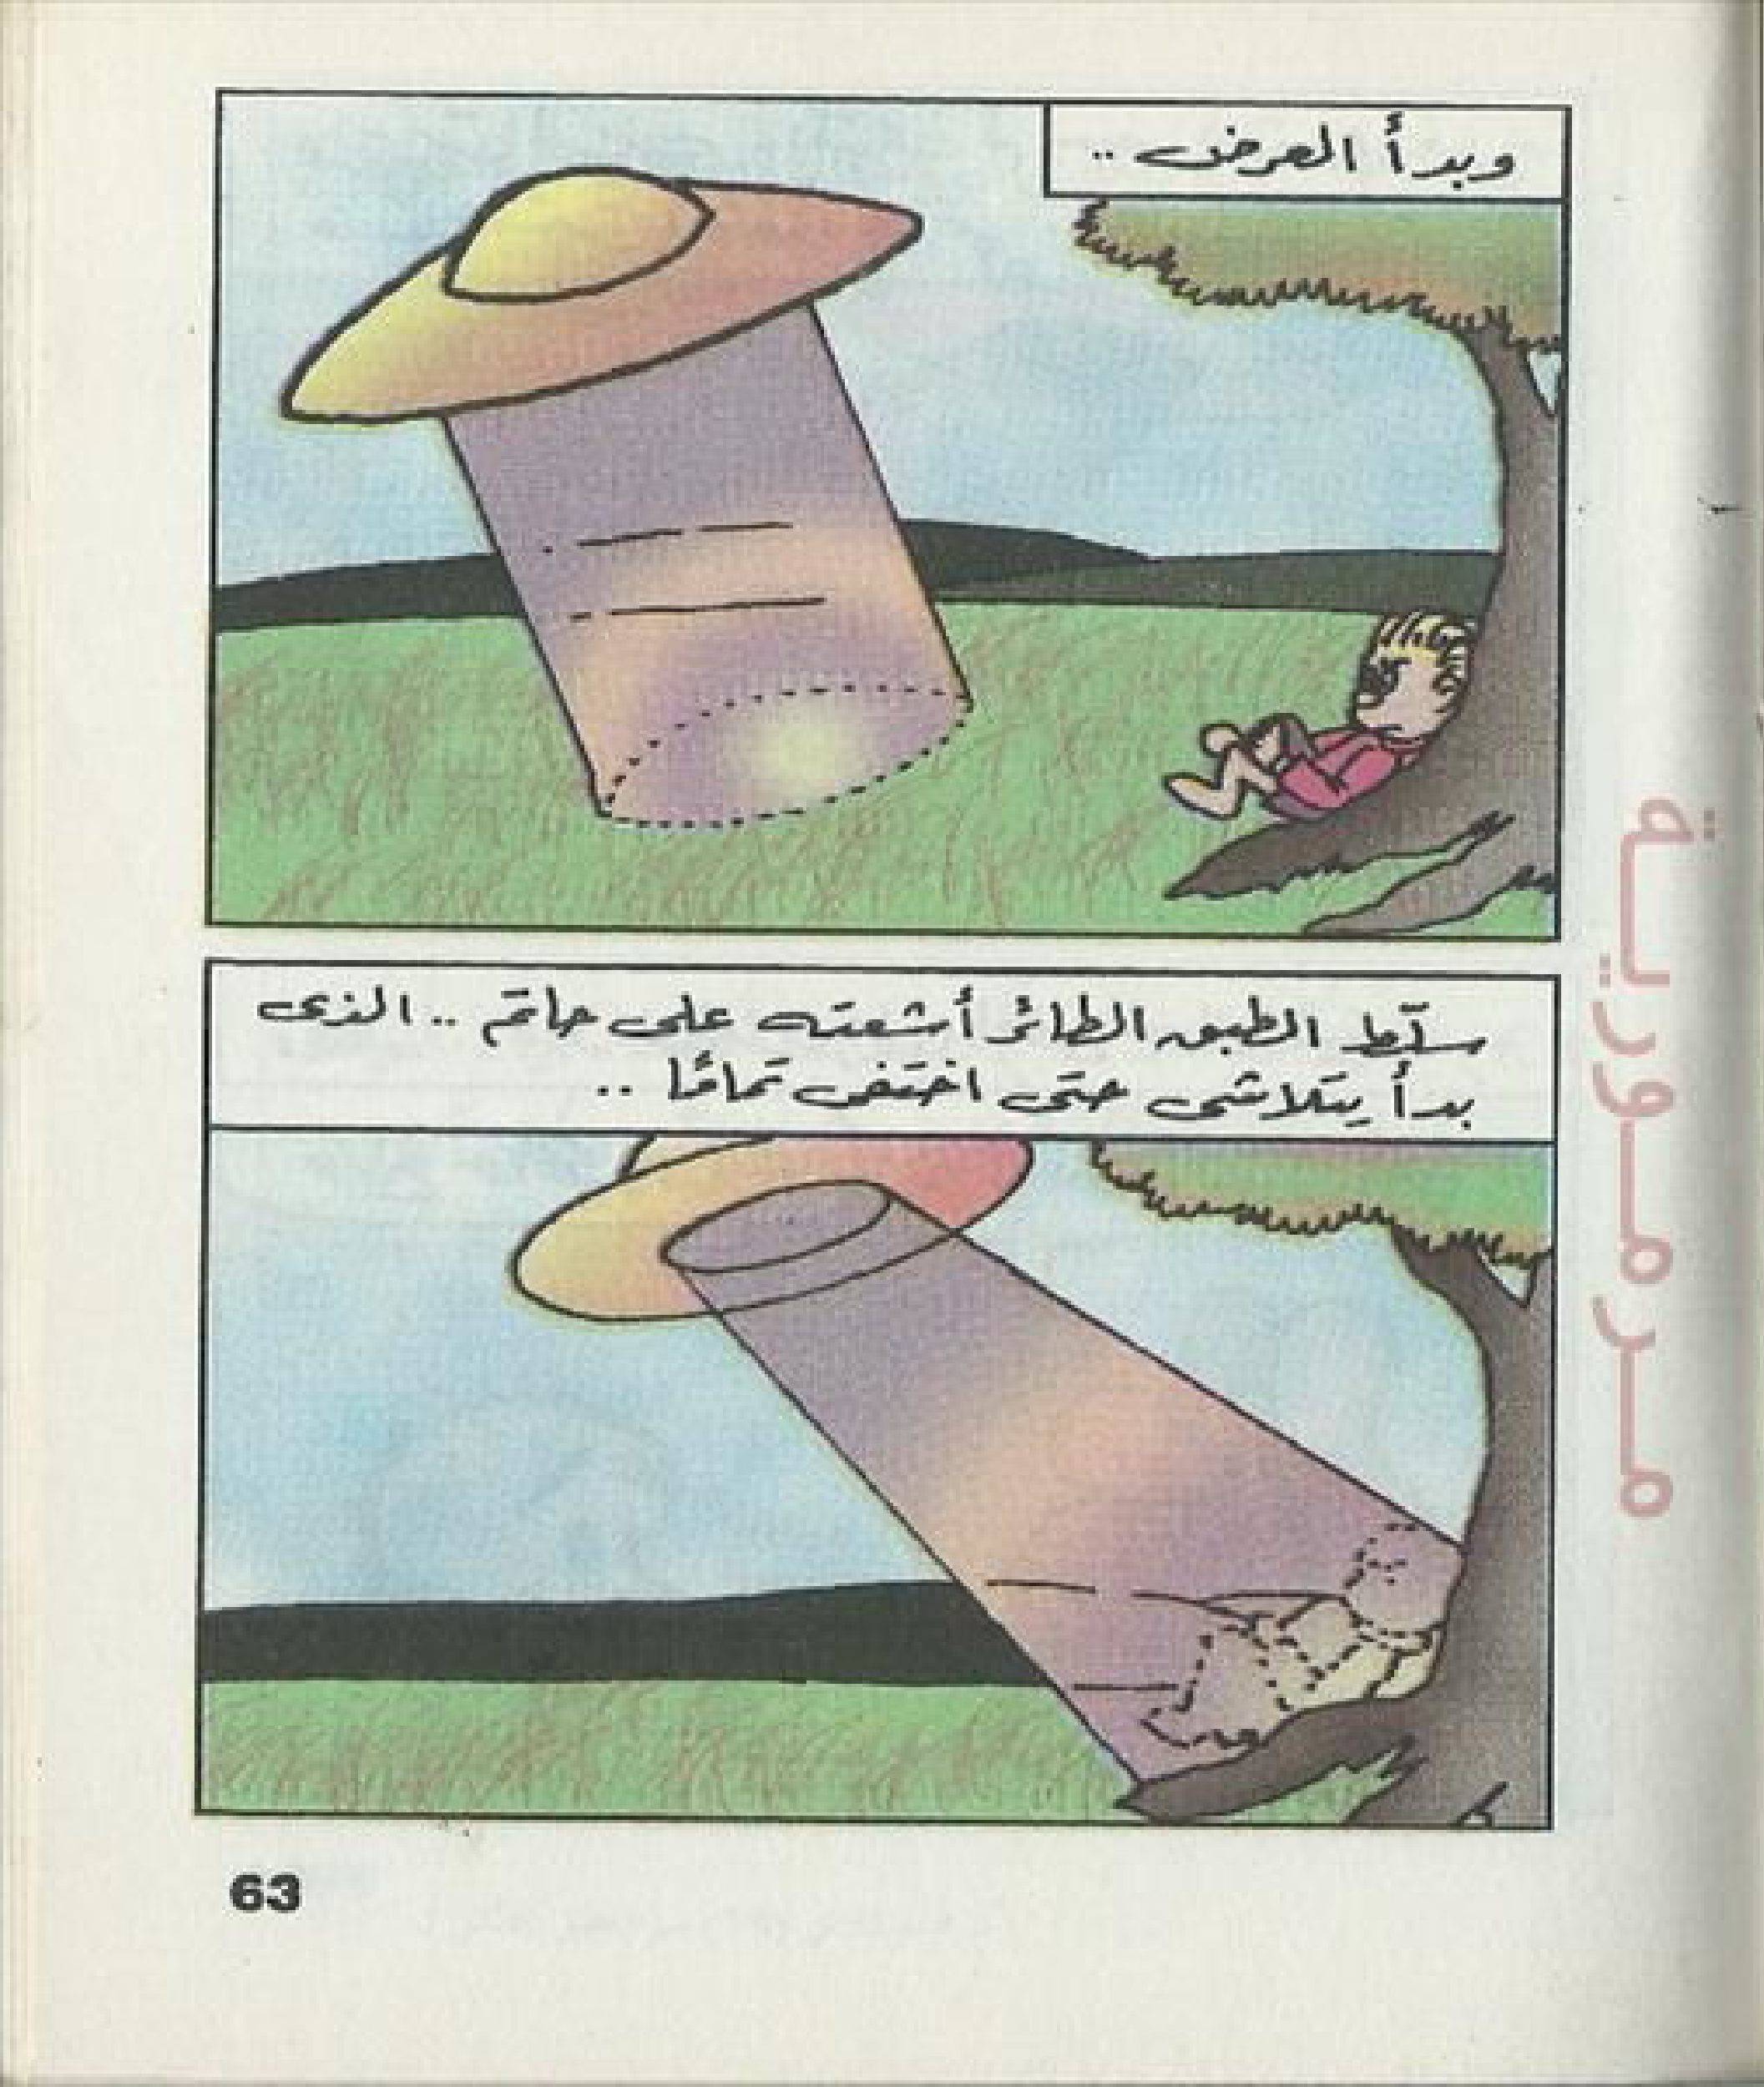 وبدأ العرض ..
سلّط الطبق الطائر أشعته على حاتم .. الذى
بدأ يتلاشى حتى اختفى تمامًا ..
مرمورية
63